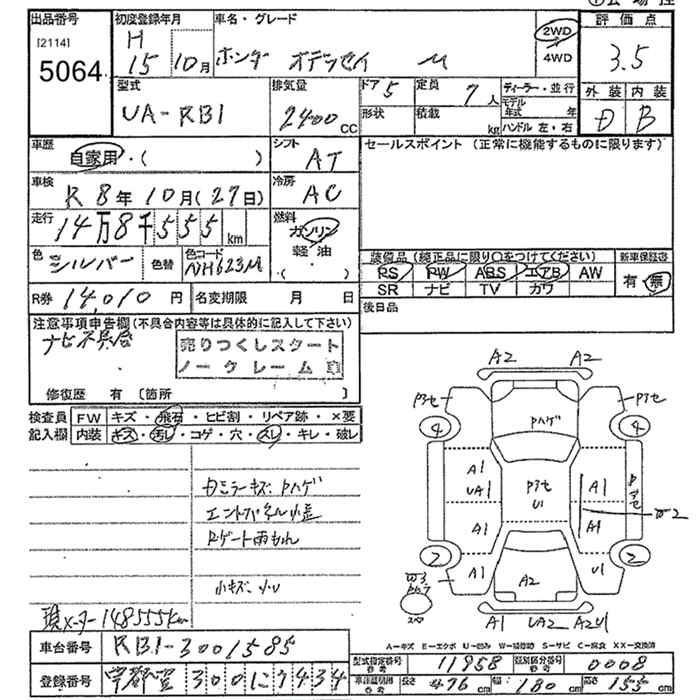 出品番号 初度登録年月 車名・グレード 評価点
[2114] H 2WD
5064 15 10月 ホンダ オデッセイ M 4WD 3.5
型式 排気量 ドア 5 定員 7人 ディーラー・並行 外装 内装
UA-RB1 2400cc 形状 積載 kg モデル年式 年 D B
ハンドル 左・右
車歴 シフト セールスポイント(正常に機能するものに限ります)
自家用・( ) AT
車検 冷房
R8年10月(27日) AC
走行 燃料
14万8千555km ガソリン
色 色替 色コード 軽油
シルバー NH623M ( )
装備品(純正品に限り○をつけてください) 新車保証書
PS PW ABS エアB AW 有・無
SR ナビ TV カワ
R券 14,010円 名変期限 月 日 後日品
注意事項申告欄(不具合内容等は具体的に記入して下さい)
ナビ不具合
売りつくしスタート
ノークレーム
修復歴 有 〔箇所 〕
検査員 FW キズ・飛石・ヒビ割・リペア跡・×要
記入欄 内装 キズ・汚レ・コゲ・穴・スレ・キレ・破レ
ミラーキズ Pハゲ
Rゲート雨もれ
小キズ・小U
現メーター148555km
A2 A2
Pハゲ
4 4
A1 UA1 A1
A1 A1
2 2
A1 A2 U1
A1 UA2 A2U1
A=キズ E=エクボ U=凹み W=補修跡 S=サビ C=腐食 XX=交換済
車台番号 RB1-3001585
登録番号 300 7434
型式指定番号 参考 11958 類別区分番号 参考 0008
車体寸法 参考 長さ 476cm 幅 180cm 高さ 155cm